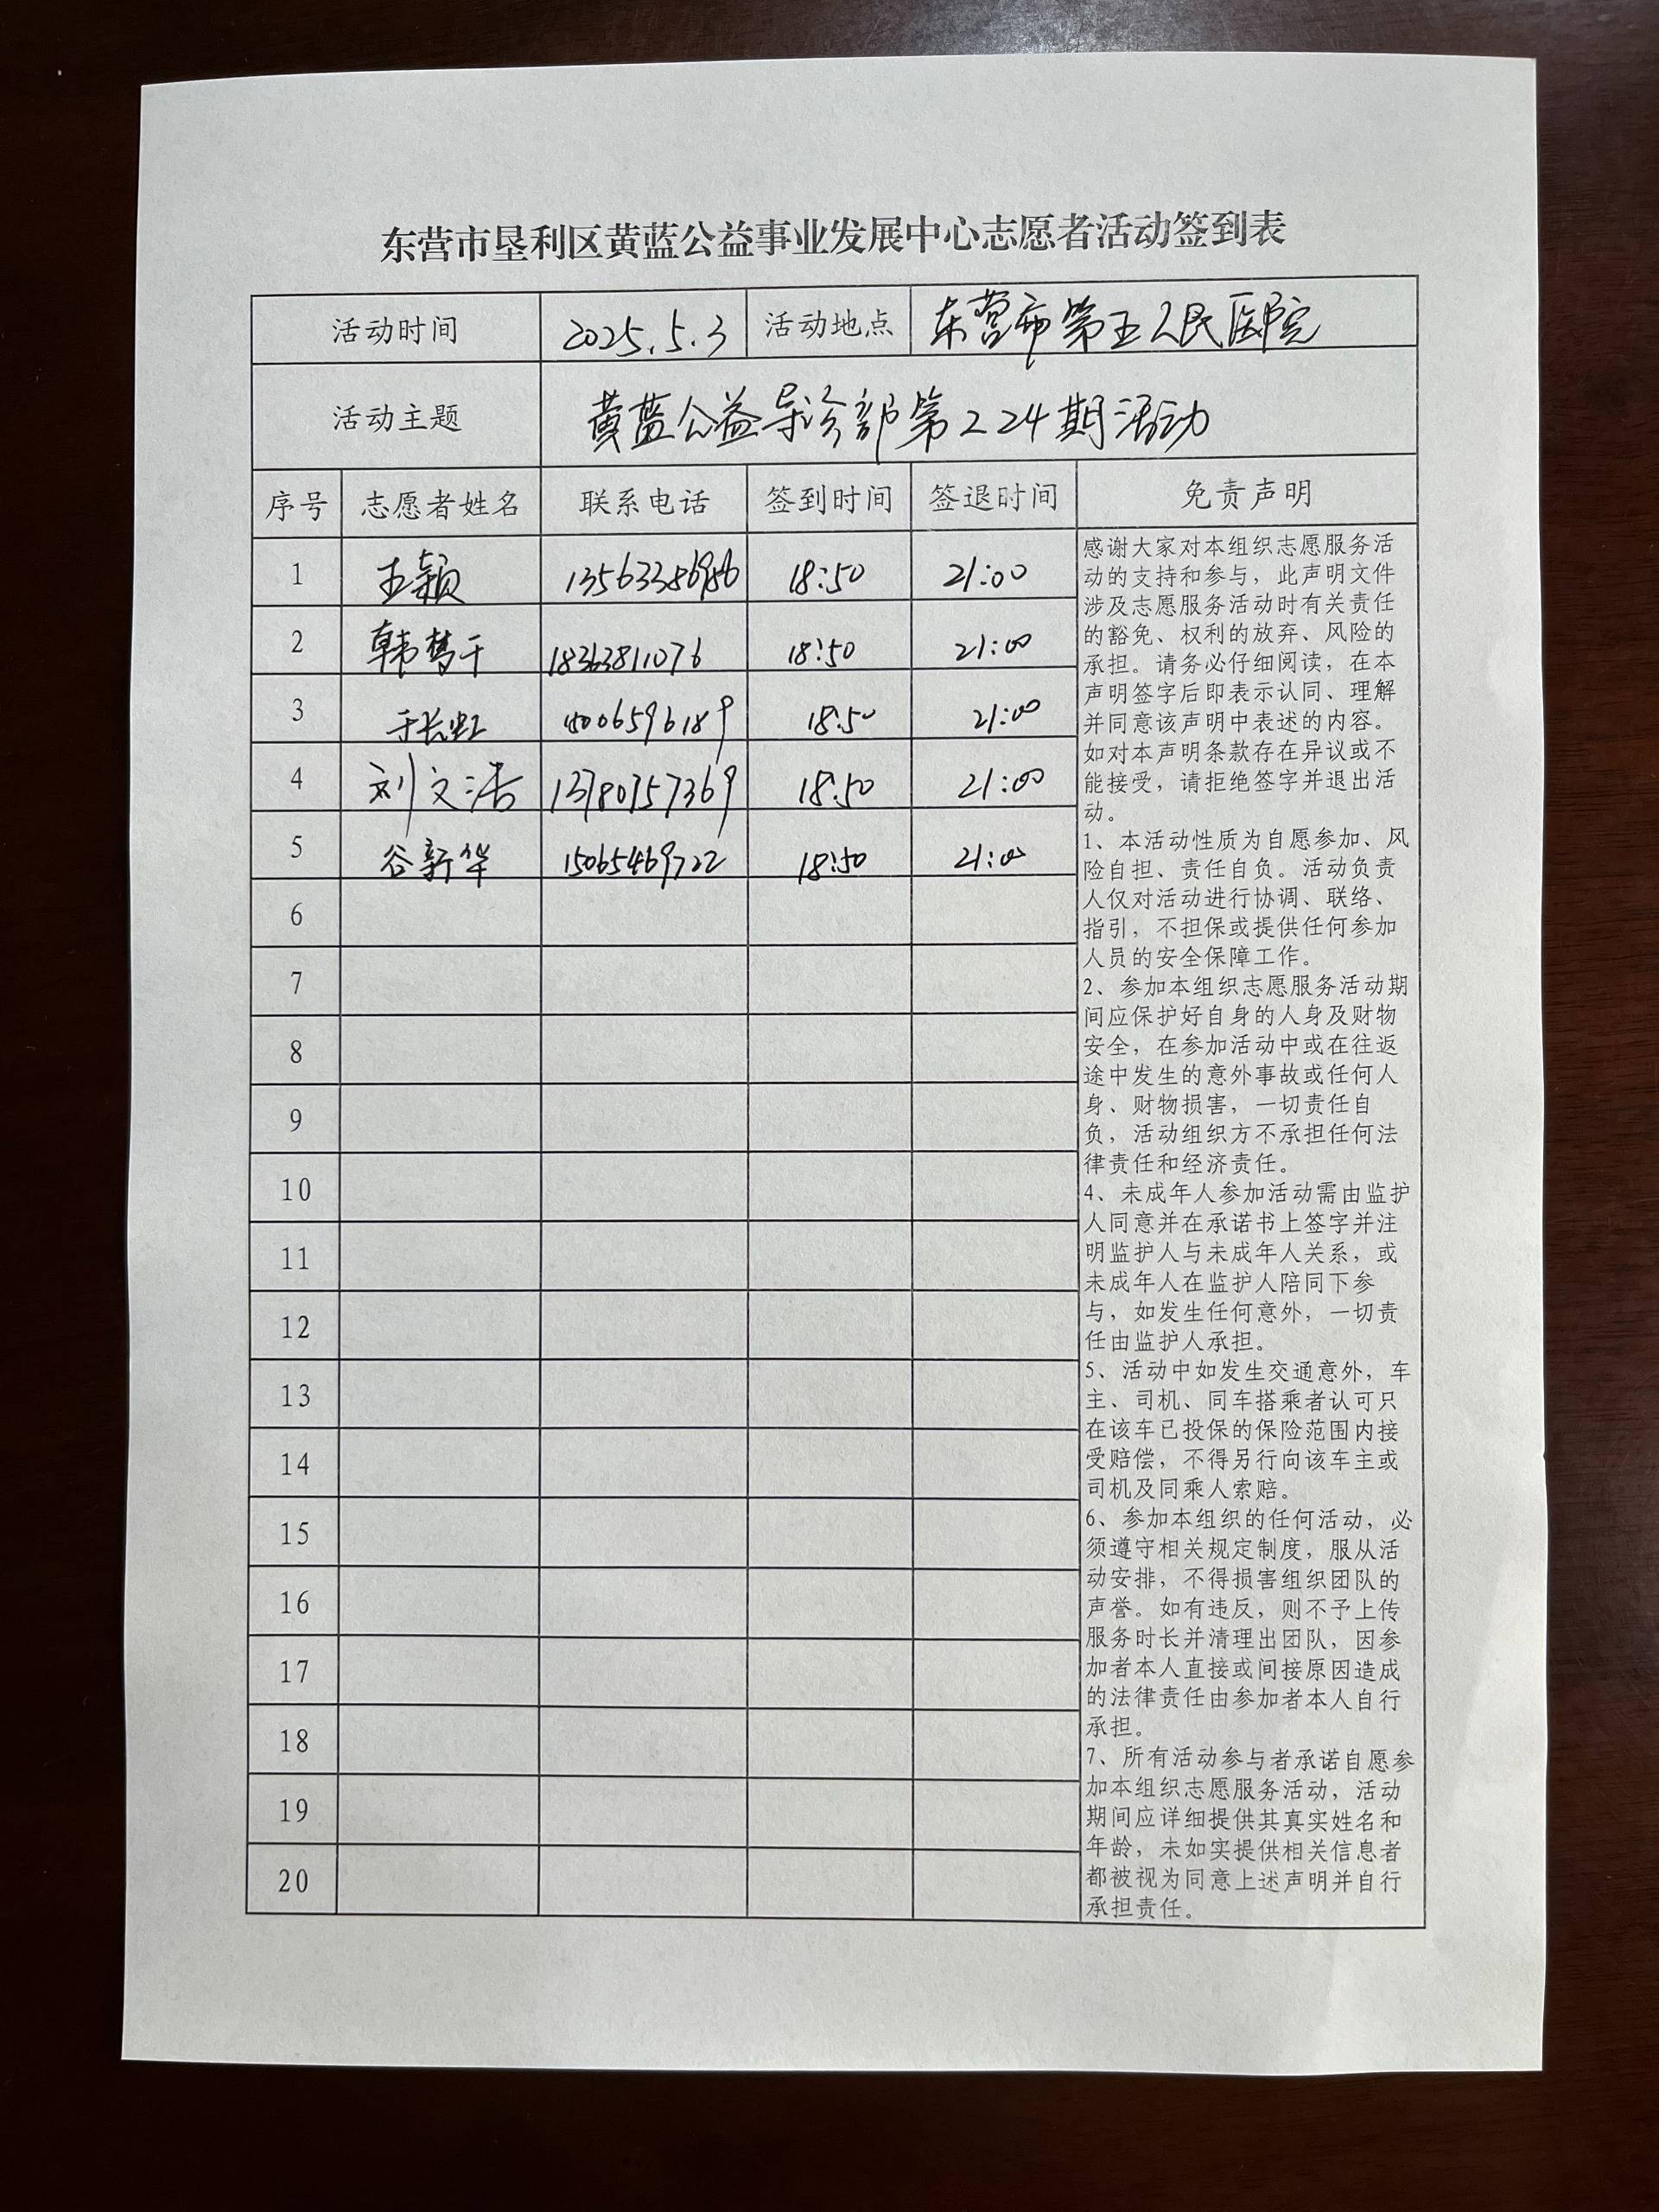 东营市垦利区黄蓝公益事业发展中心志愿者活动签到表
活动时间 2025.5.3 活动地点 东营市第五人民医院
活动主题 黄蓝公益导诊部第224期活动
序号 志愿者姓名 联系电话 签到时间 签退时间 免责声明
1 王颖 18:50 21:00
2 韩梦千 18363811076 18:50 21:00
3 于长虹 18:50 21:00
4 刘文浩 13780757369 18:50 21:00
5 谷新华 15065469722 18:50 21:00
6
7
8
9
10
11
12
13
14
15
16
17
18
19
20
感谢大家对本组织志愿服务活
动的支持和参与，此声明文件
涉及志愿服务活动时有关责任
的豁免、权利的放弃、风险的
承担。请务必仔细阅读，在本
声明签字后即表示认同、理解
并同意该声明中表述的内容。
如对本声明条款存在异议或不
能接受，请拒绝签字并退出活
动。
1、本活动性质为自愿参加、风
险自担、责任自负。活动负责
人仅对活动进行协调、联络、
指引，不担保或提供任何参加
人员的安全保障工作。
2、参加本组织志愿服务活动期
间应保护好自身的人身及财物
安全，在参加活动中或在往返
途中发生的意外事故或任何人
身、财物损害，一切责任自
负，活动组织方不承担任何法
律责任和经济责任。
4、未成年人参加活动需由监护
人同意并在承诺书上签字并注
明监护人与未成年人关系，或
未成年人在监护人陪同下参
与，如发生任何意外，一切责
任由监护人承担。
5、活动中如发生交通意外，车
主、司机、同车搭乘者认可只
在该车已投保的保险范围内接
受赔偿，不得另行向该车主或
司机及同乘人索赔。
6、参加本组织的任何活动，必
须遵守相关规定制度，服从活
动安排，不得损害组织团队的
声誉。如有违反，则不予上传
服务时长并清理出团队，因参
加者本人直接或间接原因造成
的法律责任由参加者本人自行
承担。
7、所有活动参与者承诺自愿参
加本组织志愿服务活动，活动
期间应详细提供其真实姓名和
年龄，未如实提供相关信息者
都被视为同意上述声明并自行
承担责任。